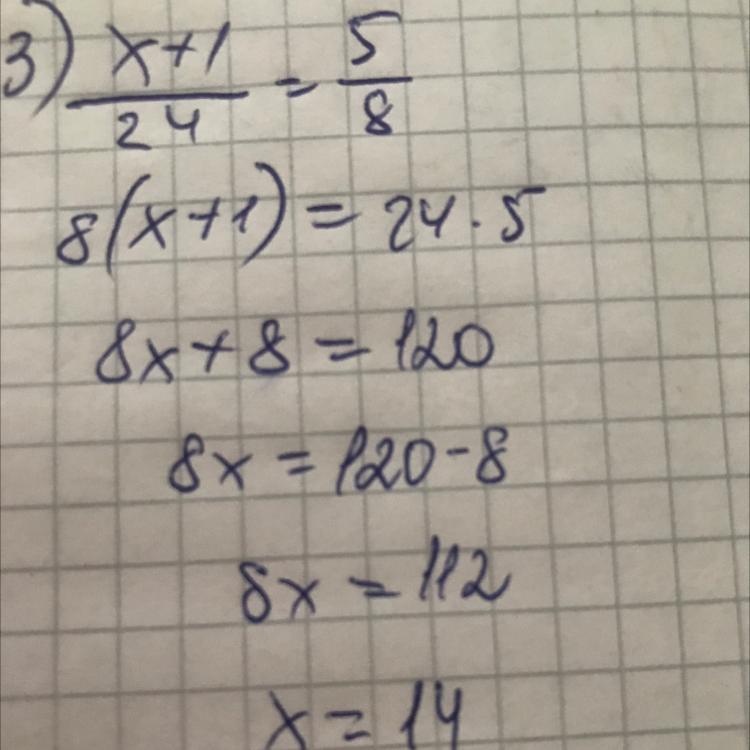 3) x+1/24 = 5/8
8(x+1) = 24·5
8x+8 = 120
8x = 120-8
8x = 112
x = 14